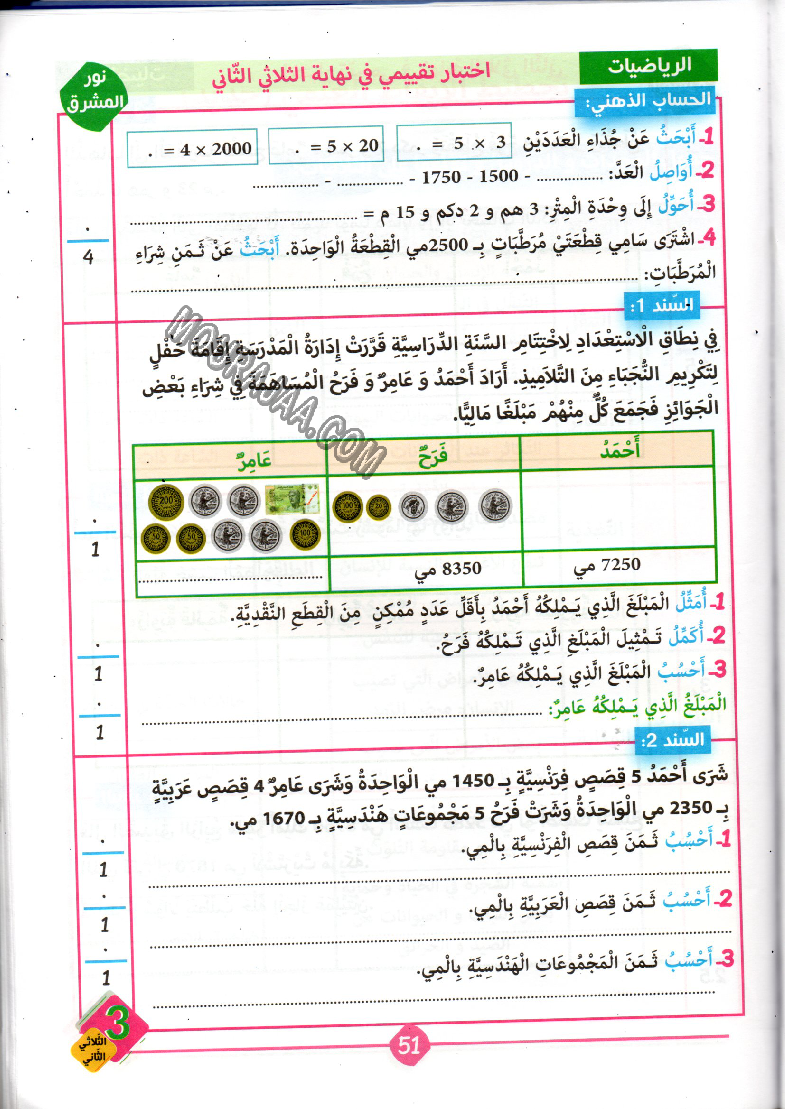 الرياضيات
اختبار تقييمي في نهاية الثلاثي الثّاني
نور
المشرق
الحساب الذهني:
1- أَبْحَثُ عَنْ جُذَاءِ الْعَدَدَيْنِ
3 × 5 = .
20 × 5 = .
2000 × 4 = .
2- أُوَاصِلُ الْعَدَّ: ................ - 1500 - 1750 - ................ - ................
3- أُحَوِّلُ إِلَى وِحْدَةِ الْمِتْرِ: 3 هم و 2 دكم و 15 م = ................
4- اشْتَرَى سَامِي قِطْعَتَيْ مُرَطَّبَاتٍ بِـ 2500مي الْقِطْعَةُ الْوَاحِدَةُ. أَبْحَثُ عَنْ ثَـمَنِ شِرَاءِ
الْمُرَطَّبَاتِ: ................
.
4
السّند 1:
فِي نِطَاقِ الْاسْتِعْدَادِ لِاخْتِتَامِ السَّنَةِ الدِّرَاسِيَّةِ قَرَّرَتْ إِدَارَةُ الْمَدْرَسَةِ إِقَامَةَ حَفْلٍ
لِتَكْرِيمِ النُّجَبَاءِ مِنَ التَّلَامِيذِ. أَرَادَ أَحْمَدُ وَ عَامِرٌ وَ فَرَحُ الْمُسَاهَمَةَ فِي شِرَاءِ بَعْضِ
الْجَوَائِزِ فَجَمَعَ كُلٌّ مِنْهُمْ مَبْلَغًا مَالِيًّا.
MOURAJAA.COM
أَحْمَدُ
فَرَحُ
عَامِرٌ
7250 مي
8350 مي
................
.
1
1- أُمَثِّلُ الْمَبْلَغَ الَّذِي يَـمْلِكُهُ أَحْمَدُ بِأَقَلِّ عَدَدٍ مُمْكِنٍ مِنَ الْقِطَعِ النَّقْدِيَّةِ.
2- أُكَمِّلُ تَـمْثِيلَ الْمَبْلَغِ الَّذِي تَـمْلِكُهُ فَرَحُ.
.
1
3- أَحْسُبُ الْمَبْلَغَ الَّذِي يَـمْلِكُهُ عَامِرٌ.
الْمَبْلَغُ الَّذِي يَـمْلِكُهُ عَامِرٌ: ................
.
1
السّند 2:
شَرَى أَحْمَدُ 5 قِصَصٍ فِرَنْسِيَّةٍ بِـ 1450 مي الْوَاحِدَةُ وَشَرَى عَامِرٌ 4 قِصَصٍ عَرَبِيَّةٍ
بِـ 2350 مي الْوَاحِدَةُ وَشَرَتْ فَرَحُ 5 مَجْمُوعَاتٍ هَنْدَسِيَّةٍ بِـ 1670 مي.
1- أَحْسُبُ ثَـمَنَ قِصَصِ الْفِرَنْسِيَّةِ بِالْمِي.
................
.
1
2- أَحْسُبُ ثَـمَنَ قِصَصِ الْعَرَبِيَّةِ بِالْمِي.
................
.
1
3- أَحْسُبُ ثَـمَنَ الْمَجْمُوعَاتِ الْهَنْدَسِيَّةِ بِالْمِي.
................
.
1
3
الثّلاثي
الثّاني
51